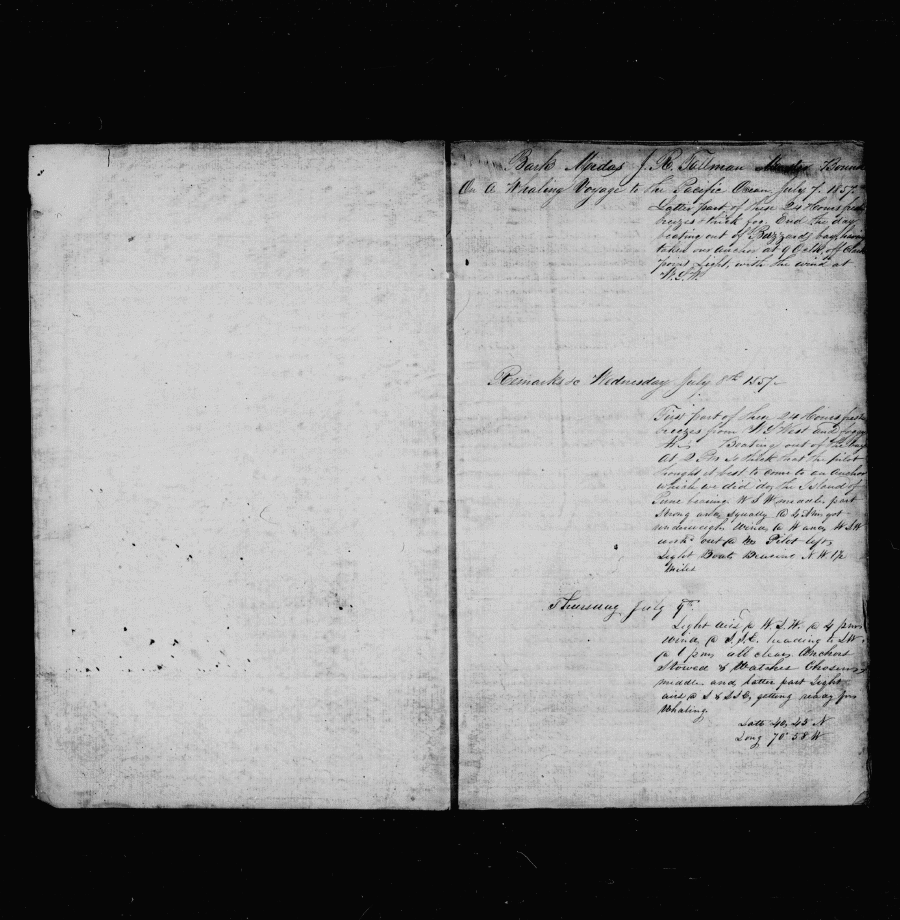 Bark Midas J. R. Tallman Bound
On A Whaling Voyage to the Pacific Ocean July 7. 1857
Latter part of these 24 Hours fresh
breezes & thick fog. End the day
beating out of Buzzards bay having
taken our anchor at 9 Oclk off Clark
point Light, with the wind at
W.S.W.
Remarks &c Wednesday July 8th 1857
First part of these 24 Hours fresh
breezes from W S West and foggy
Beating out of the bay
At 2 Pm so thick that the pilot
thought it best to come to an Anchor
which we did do, the Island of
Pune bearing W S W middle part
Strong and squally @ 4 Am got
underweigh wind @ W and W S W
out @ Pilot left
Light Boat Bearing N. W. 1/2
Miles
Thursday July 9th
Light airs @ W. S. W. @ 4 pm
wind @ S. S. E. heading to SW
@ 1 pm all clear. Anchors
Stowed & Watches Chosen
middle and latter part Light
airs @ S & S S E, getting ready for
Whaling.
Latt 40, 43 N
Long 70° 58 W